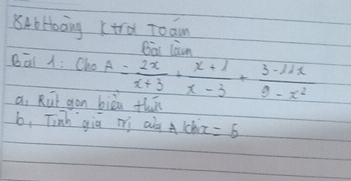 Ktra Toán
Bài làm
Bài 1: Cho A = 2x/x+3 + x+1/x-3 + 3-11x/9-x²
a, Rút gọn biểu thức
b, Tính giá trị của A khi x = 5